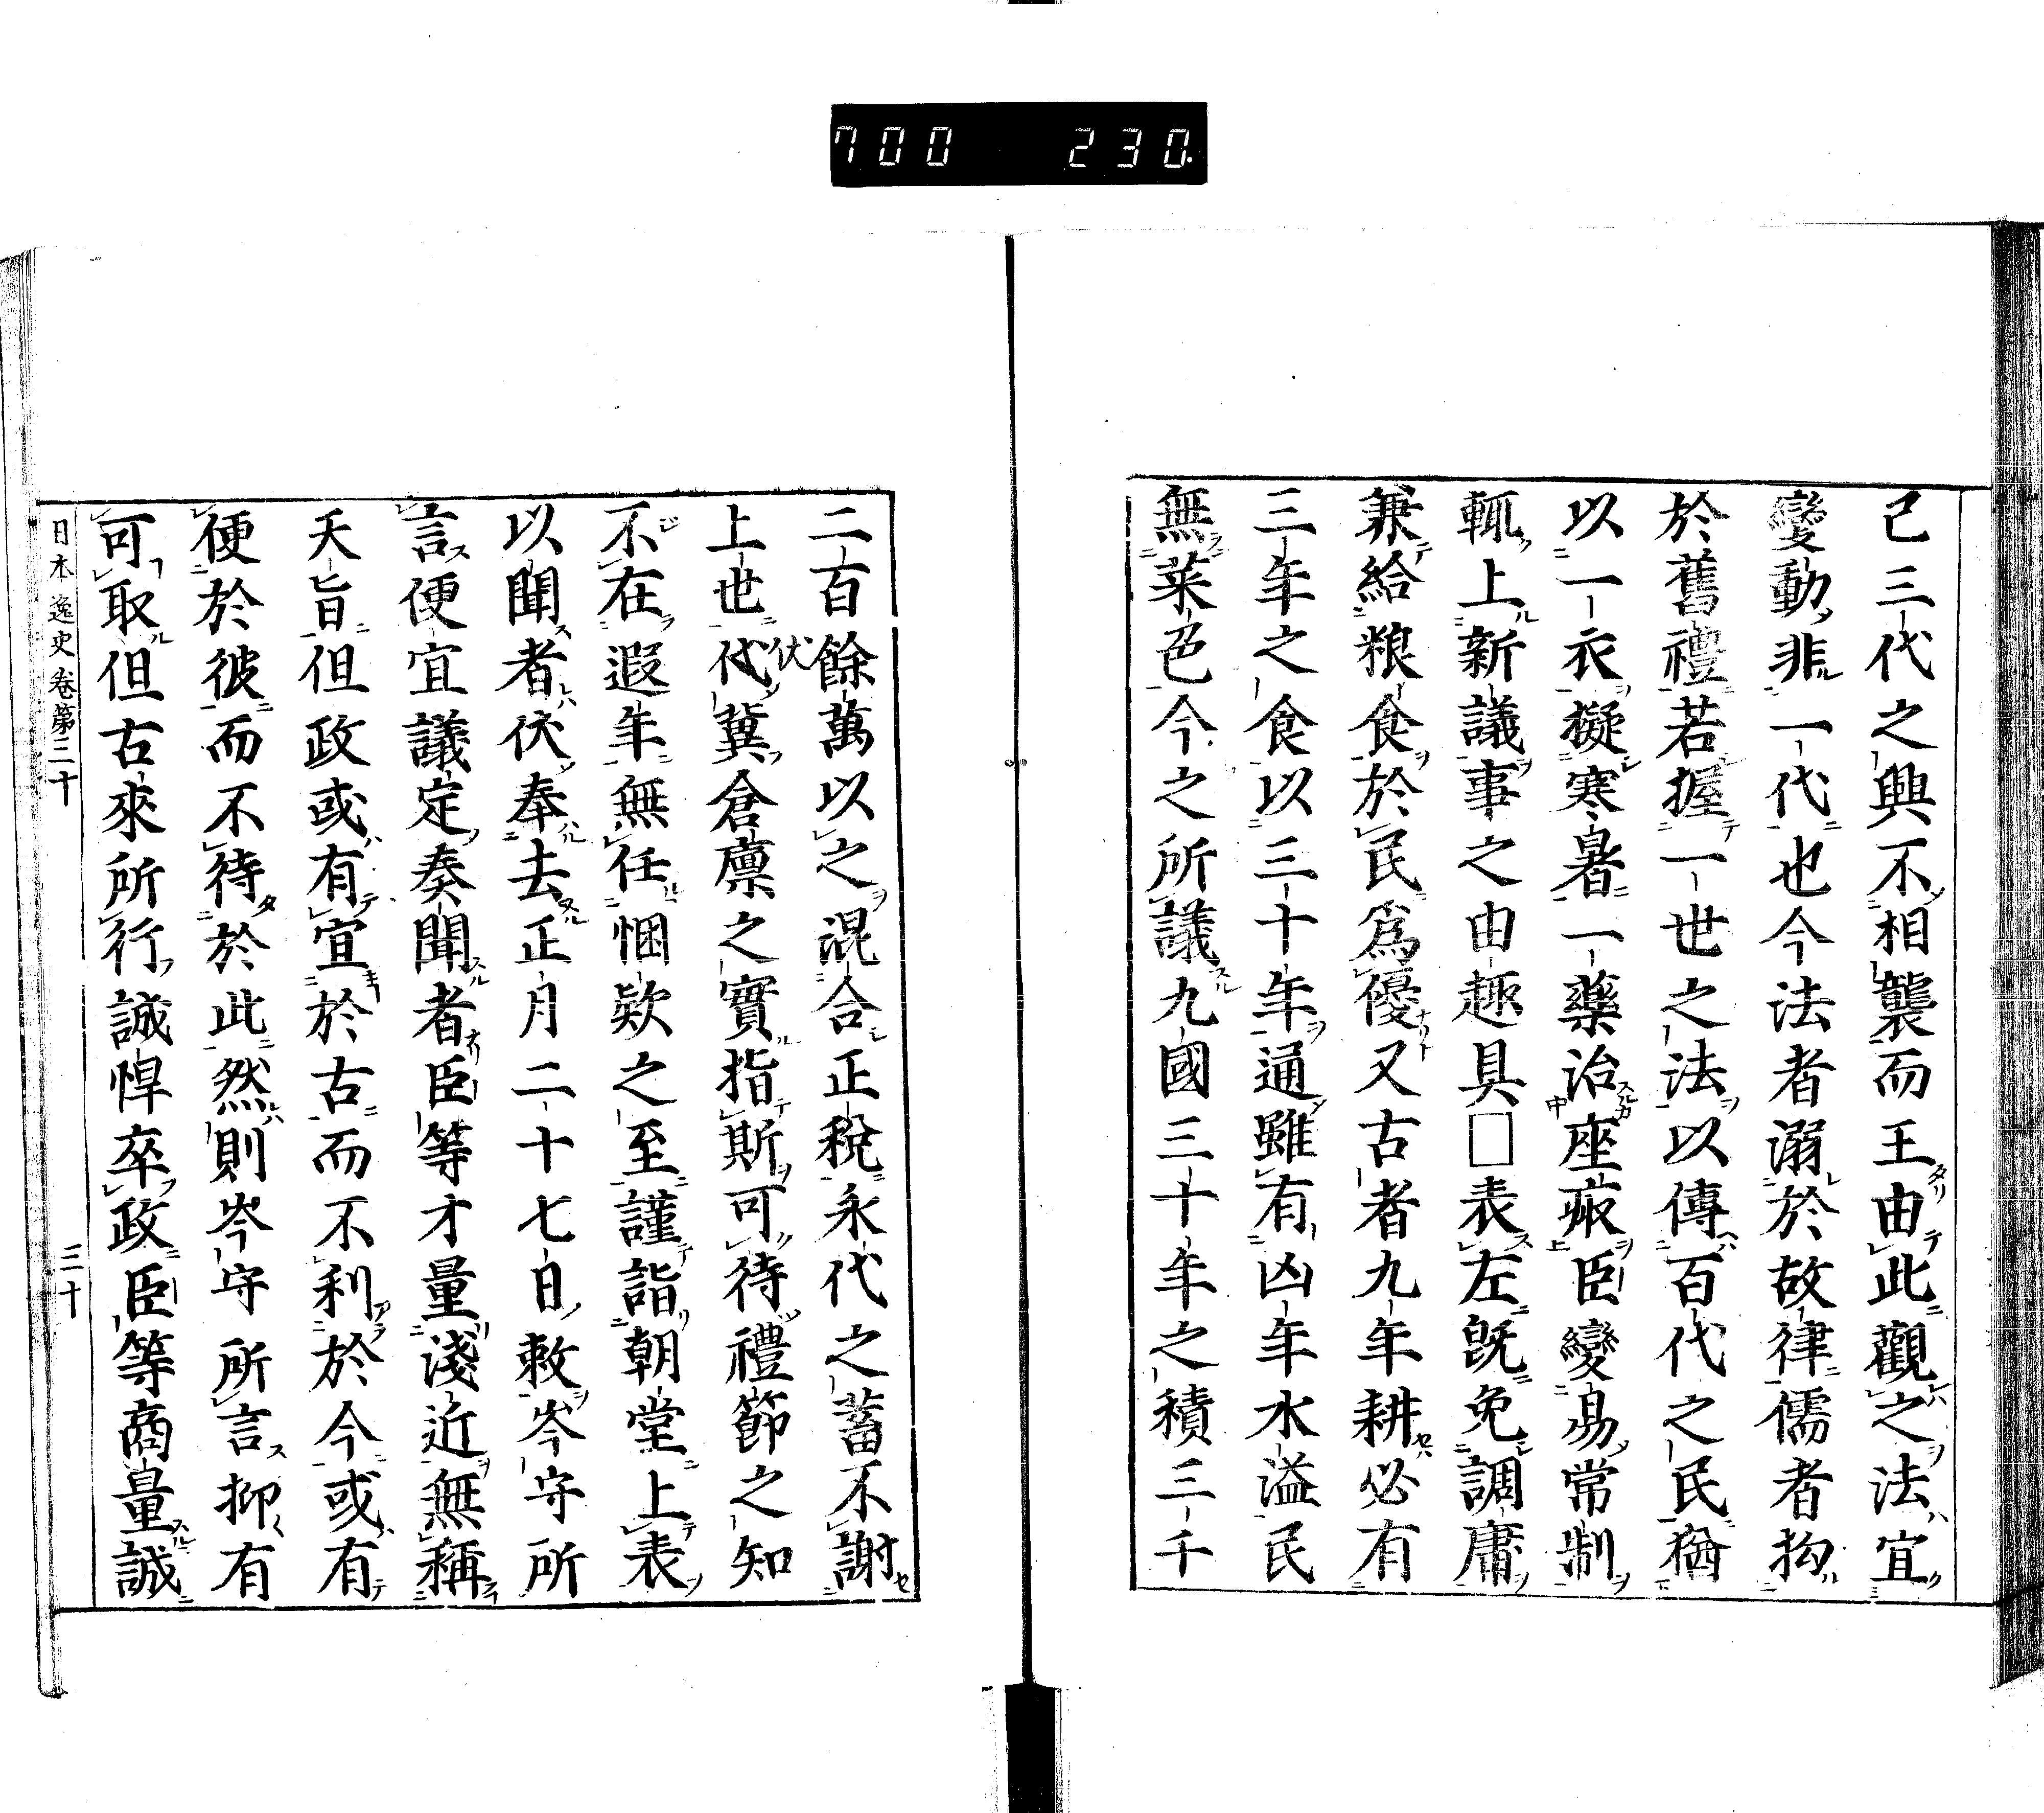 700 230.
己三代之興不相襲而王由此觀之法宜
變動非一代也今法者溺於故律儒者拘
於舊禮若握一世之法以傳百代之民猶
以一衣擬寒暑一藥治座疾臣變易常制
輒上新議事之由趣具□表左旣免調庸
兼給粮食於民爲優又古者九年耕必有
三年之食以三十年通雖有凶年水溢民
無菜色今之所議九國三十年之積三千
二百餘萬以之混合正稅永代之蓄不謝
上世代伏冀倉廩之實指斯可待禮節之知
不在遐年無任悃欵之至謹詣朝堂上表
以聞者伏奉去正月二十七日敕岑守所
言便宜議定奏聞者臣等才量淺近無稱
天旨但政或有宜於古而不利於今或有
便於彼而不待於此然則岑守所言抑有
可取但古來所行誠悍卒政臣等商量誠
日本逸史卷第三十
三十